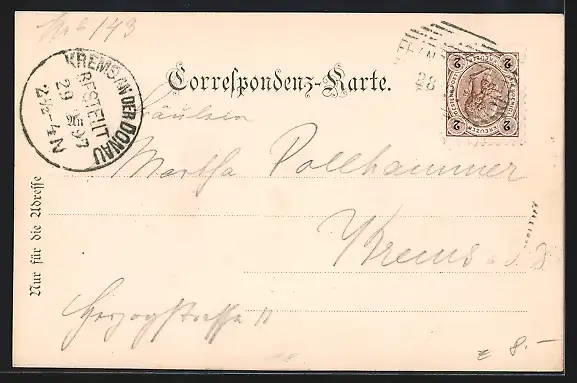 No 143
KREMS AN DER DONAU
BESTELLT
29
97
N
28
2 KREUZER 2
Correspondenz-Karte.
Fräulein
Martha Pollhammer
Krems a. d. D.
Herzogstrasse 11
Nur für die Adresse
8.-